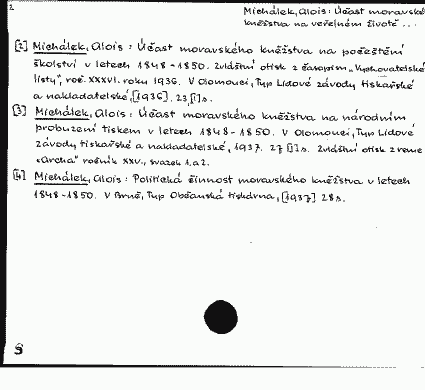 2
Michálek, Alois: Účast moravské
kněžstva na veřejném životě ...
[2] Michálek, Alois: Účast moravského kněžstva na počeštění
školství v letech 1848-1850. Zvláštní otisk z časopisu „Vychovatelské
listy", roč. XXXVI. roku 1936. V Olomouci, Typ Lidové závody tiskařské
a nakladatelské, [1936]. 23,[I]s.
[3] Michálek, Alois: Účast moravského kněžstva na národním
probuzení tiskem v letech 1848-1850. V Olomouci, Typ Lidové
závody tiskařské a nakladatelské, 1937. 27 [I] s. Zvláštní otisk z revue
"Archa" ročník XXV, svazek 1. a 2.
[4] Michálek, Alois: Politická činnost moravského kněžstva v letech
1848-1850. V Brně, Typ Občanská tiskárna, [1937] 28 s.